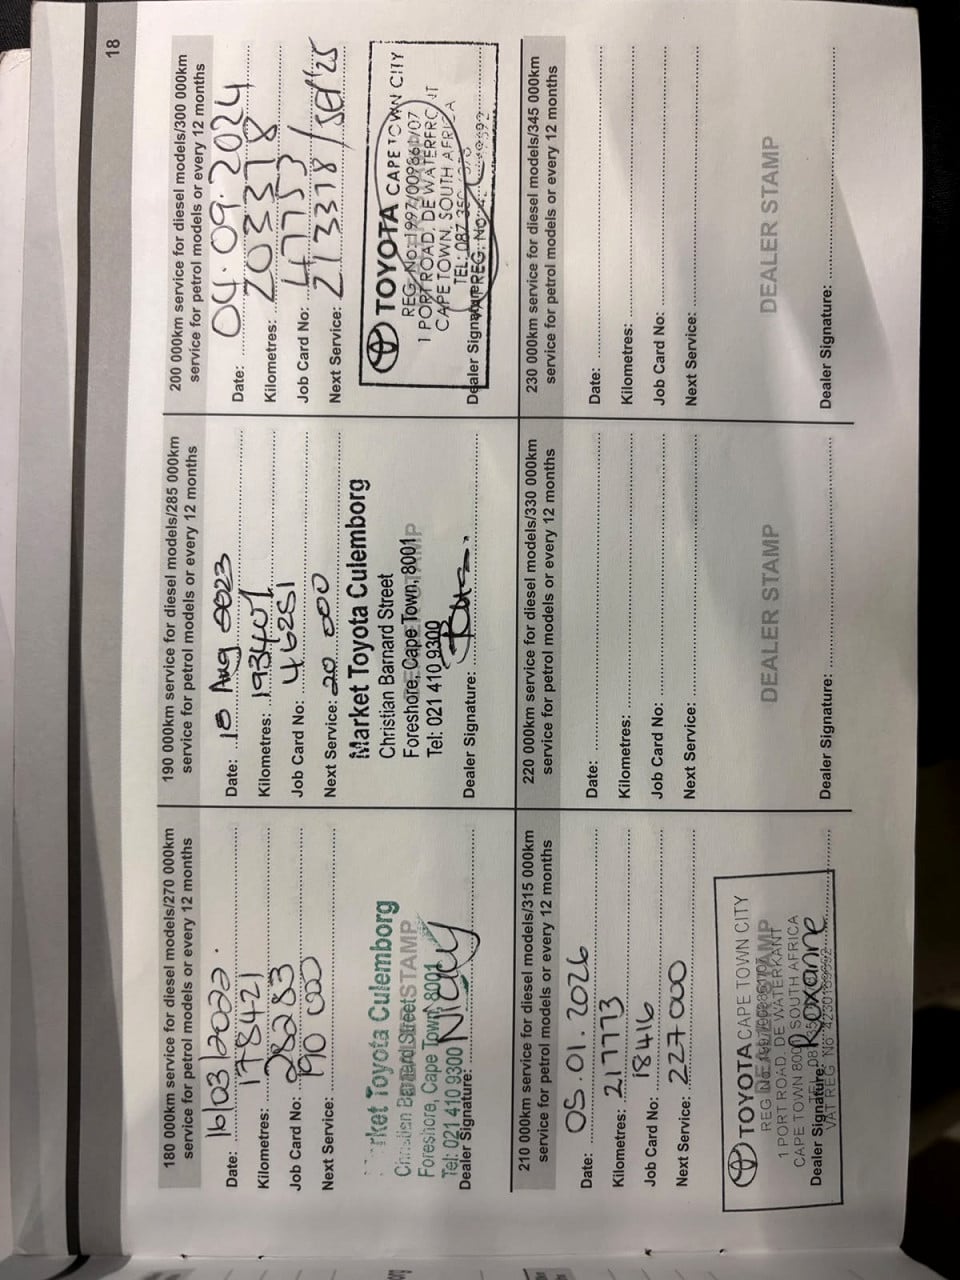 18
180 000km service for diesel models/270 000km
service for petrol models or every 12 months
Date: 16/03/2022.
Kilometres: 178421
Job Card No: 28283
Next Service: 190 000
Market Toyota Culemborg
Christian Barnard Street
Foreshore, Cape Town, 8001
Tel: 021 410 9300
Dealer Signature:
190 000km service for diesel models/285 000km
service for petrol models or every 12 months
Date: 18 Aug 2023
Kilometres: 193407
Job Card No: 46281
Next Service: 20 000
Market Toyota Culemborg
Christian Barnard Street
Foreshore, Cape Town, 8001
Tel: 021 410 9300
Dealer Signature:
200 000km service for diesel models/300 000km
service for petrol models or every 12 months
Date: 04.09.2024
Kilometres: 203318
Job Card No: 47753
Next Service: 213318 / Sep'25
TOYOTA CAPE TOWN CITY
REG. No: 1997/009861/07
1 PORT ROAD, DE WATERFRONT
CAPE TOWN, SOUTH AFRICA
TEL: 087
Dealer Signature:
210 000km service for diesel models/315 000km
service for petrol models or every 12 months
Date: 05.01.2026
Kilometres: 217773
Job Card No: 18416
Next Service: 227 000
TOYOTA CAPE TOWN CITY
1 PORT ROAD, DE WATERKANT
CAPE TOWN 8000 SOUTH AFRICA
Dealer Signature: Roxanne
VAT REG No
220 000km service for diesel models/330 000km
service for petrol models or every 12 months
Date:
Kilometres:
Job Card No:
Next Service:
DEALER STAMP
Dealer Signature:
230 000km service for diesel models/345 000km
service for petrol models or every 12 months
Date:
Kilometres:
Job Card No:
Next Service:
DEALER STAMP
Dealer Signature: